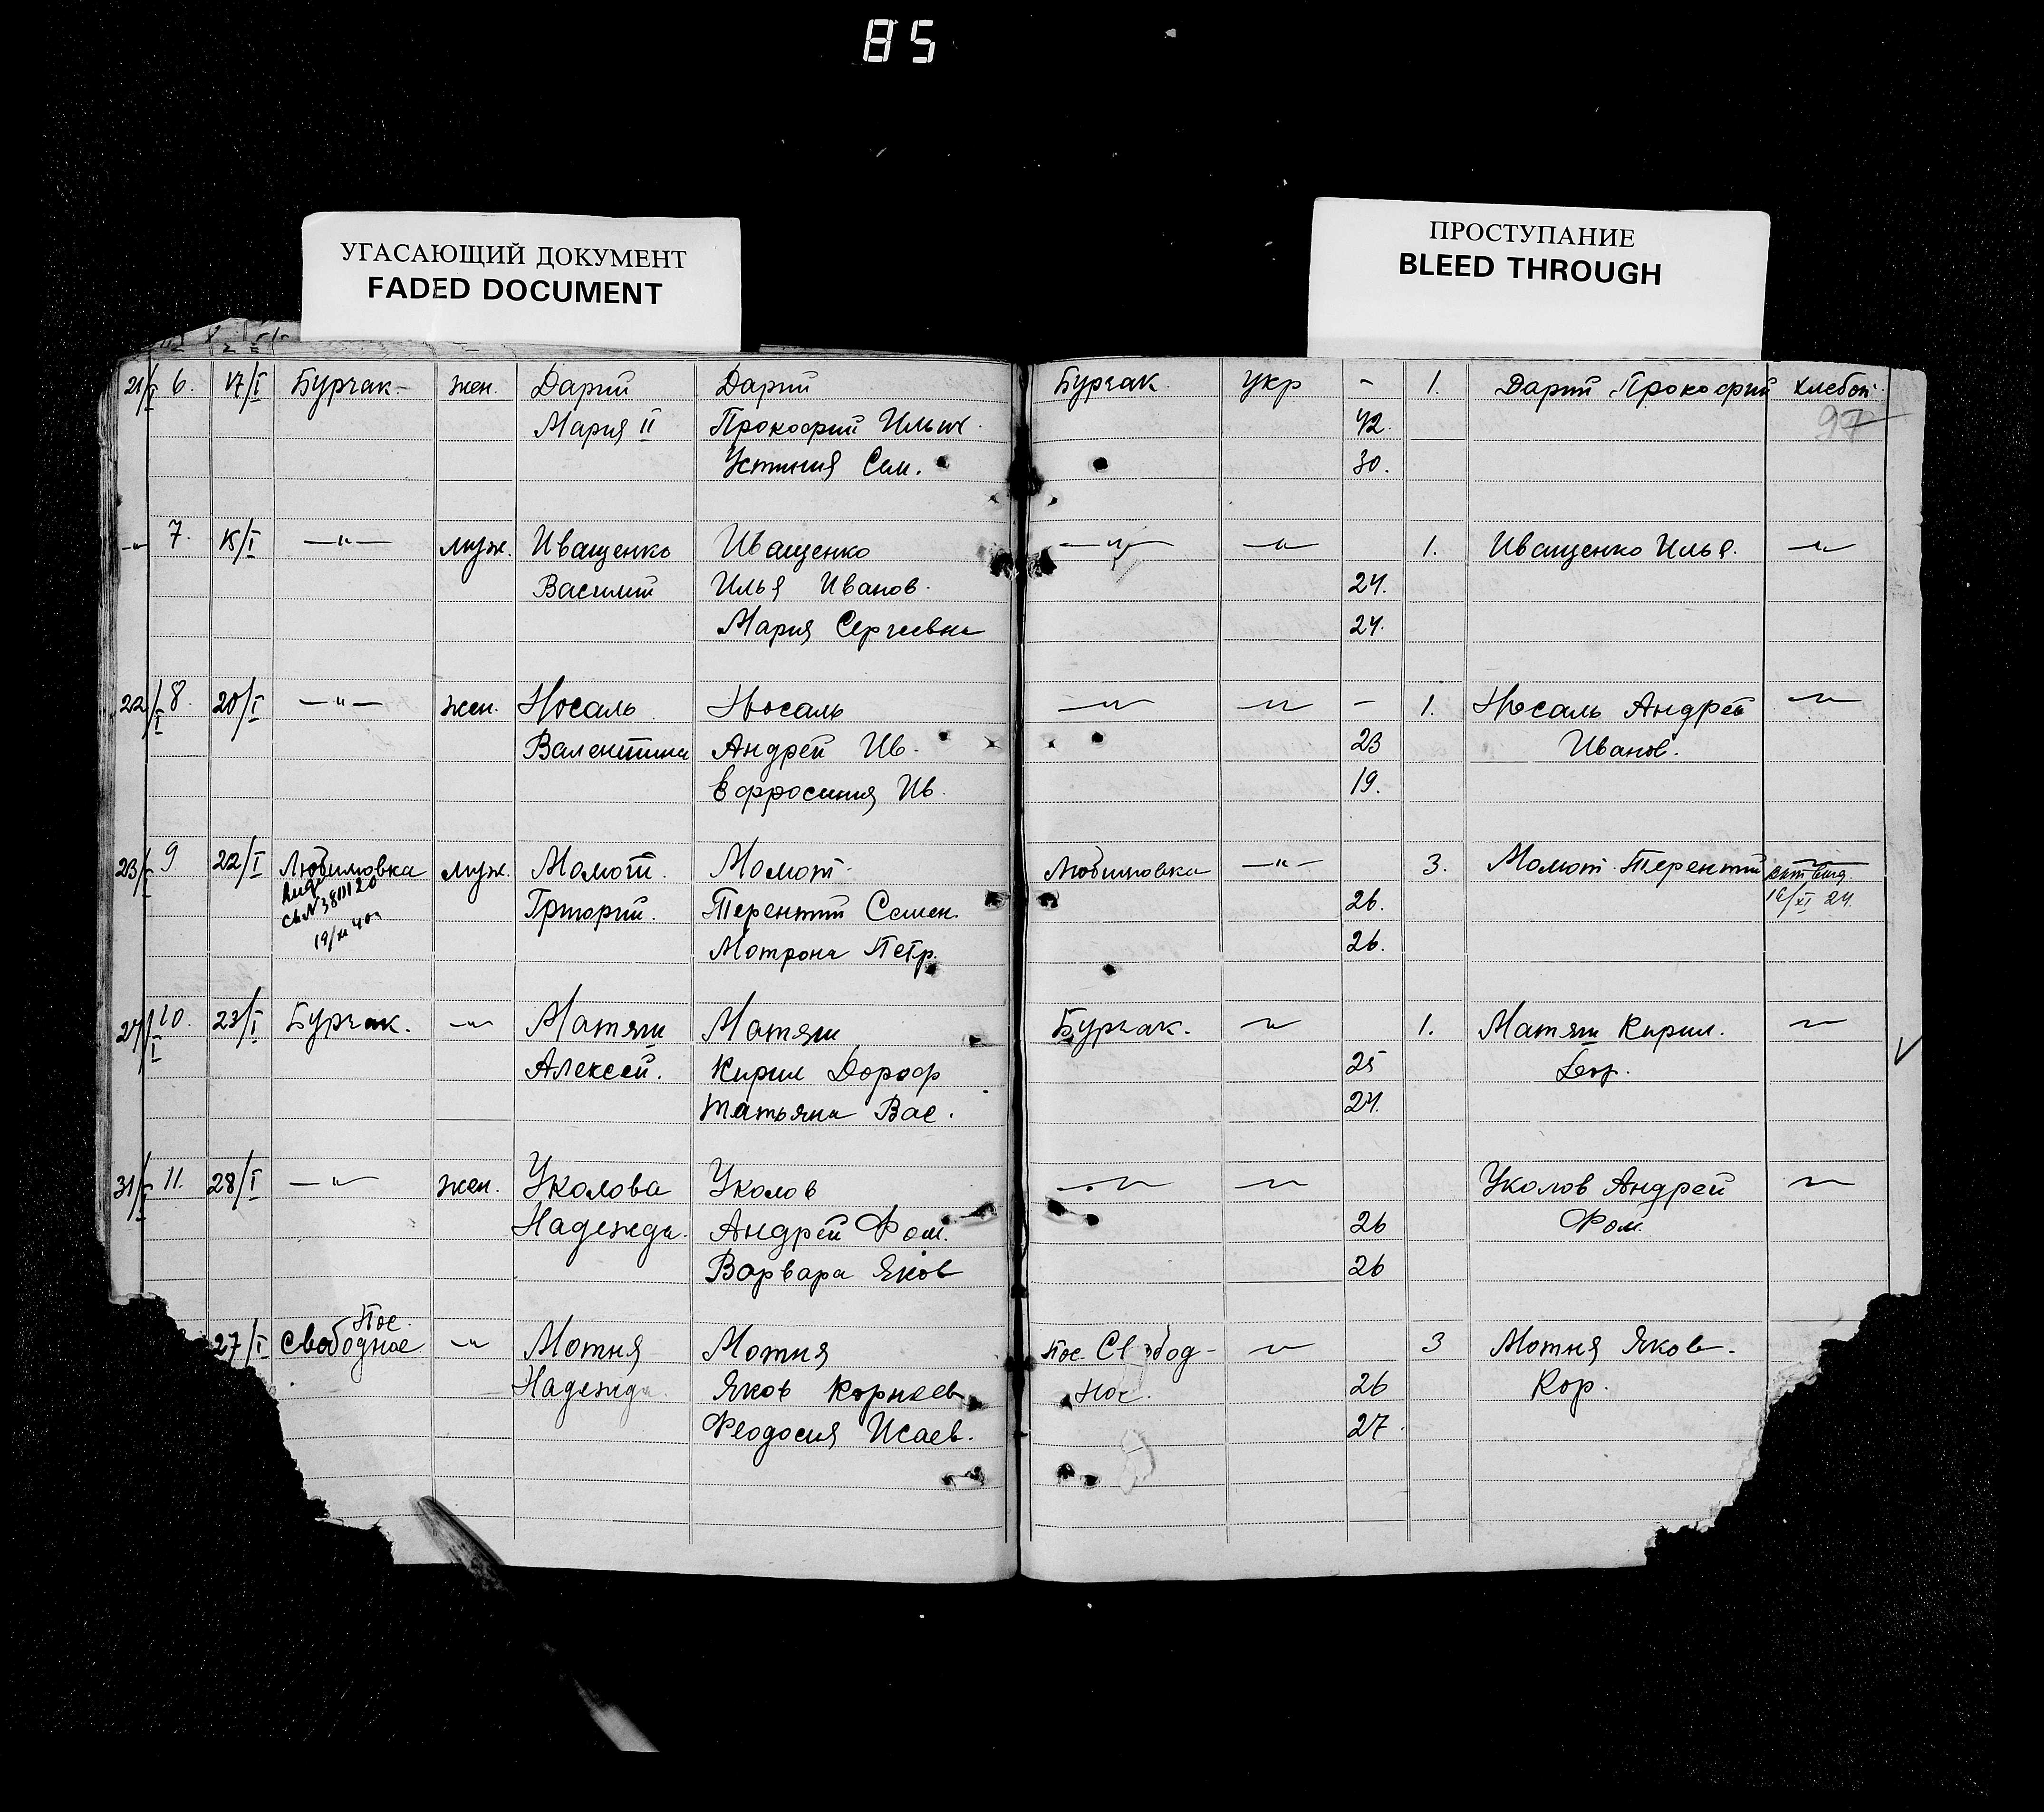 85
УГАСАЮЩИЙ ДОКУМЕНТ
FADED DOCUMENT
ПРОСТУПАНИЕ
BLEED THROUGH
21/I 6. 17/I Бурчак- жен. Дарий Дарий Бурчак. укр - 1. Дарий Прокофий хлебоп.
Мария II Прокофий Ильич. 42. 97
Устиния Сем. 30.
-"- 7. 15/I -"- муж. Иващенко Иващенко -"- -"- 1. Иващенко Илья. -"-
Василий Илья Иванов. 24.
Мария Сергеевна 24.
22/I 8. 20/I -"- жен. Носаль Носаль -"- -"- - 1. Носаль Андрей -"-
Валентина Андрей Ив. 23 Иванов.
Ефросиния Ив. 19.
23/I 9 22/I Любимовка муж. Мамот. Мамот. Любимовка -"- 3. Мамот Терентий -"-
СЬ№3811120 Григорий. Терентий Семен. 26. 16/XI 24.
19/XI 40 Мотрона Петр. 26.
27/I 10. 23/I Бурчак. -"- Матяш Матяш Бурчак. -"- 1. Матяш Кирил. -"-
Алексей. Кирил Дороф 25
Татьяна Вас. 24.
31/I 11. 28/I -"- жен. Уколова Уколов -"- -"- Уколов Андрей -"-
Надежда. Андрей Фом. 26 Фом.
Варвара Яков 26
Пос.
27/I Свободное -"- Мотня Мотня Пос. Свобод- -"- 3 Мотня Яков.
Надежда Яков Корнеев ное. 26 Кор.
Феодосия Исаев. 27.